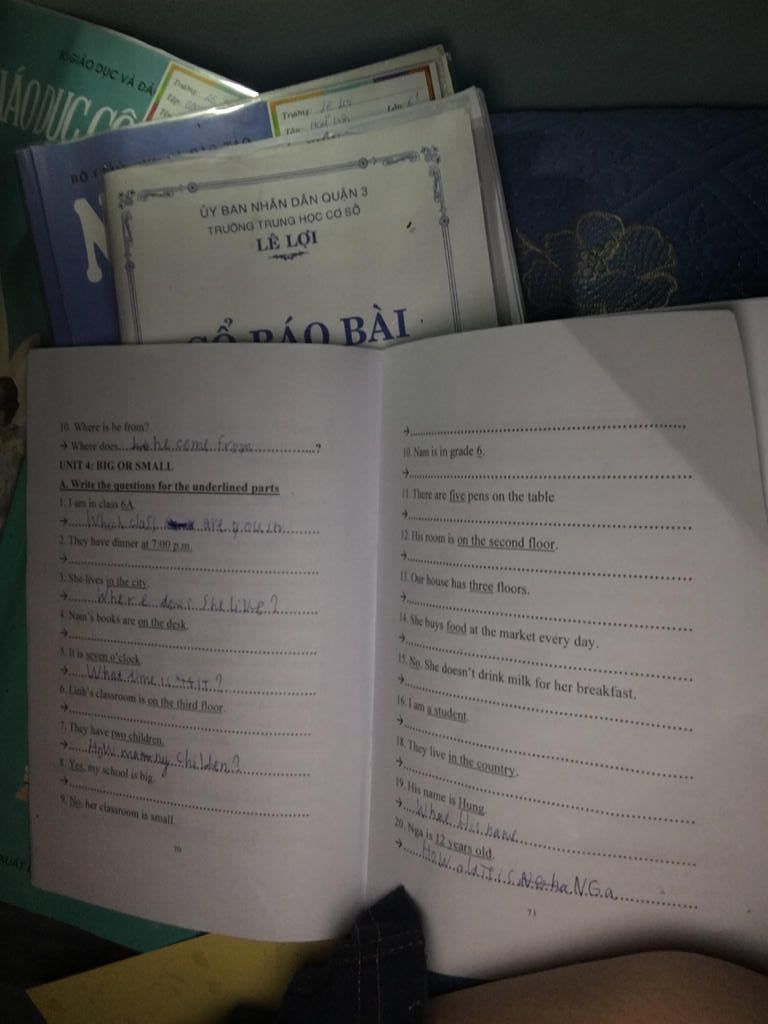 BỘ GIÁO DỤC VÀ ĐÀ
GIÁO DỤC CÔ
Trường: LÊ LỢI
Lớp: 6
Tên:
ỦY BAN NHÂN DÂN QUẬN 3
TRƯỜNG TRUNG HỌC CƠ SỞ
LÊ LỢI
SỔ BÁO BÀI
10. Where is he from?
→ Where does he come from ?
UNIT 4: BIG OR SMALL
A. Write the questions for the underlined parts
1. I am in class 6A.
→ Which class are you in
2. They have dinner at 7:00 p.m.
→
3. She lives in the city.
→ Where does she live?
4. Nam's books are on the desk.
→
5. It is seven o'clock.
→ What time is it?
6. Linh's classroom is on the third floor.
→
7. They have two children.
→ How many children?
8. Yes, my school is big.
→
9. No, her classroom is small.
70
→
10. Nam is in grade 6.
→
11. There are five pens on the table
→
12. His room is on the second floor.
→
13. Our house has three floors.
→
14. She buys food at the market every day.
→
15. No. She doesn't drink milk for her breakfast.
→
16. I am a student.
→
18. They live in the country.
→
19. His name is Hung.
→ What His name
20. Nga is 12 years old.
→ How old is NGa
71